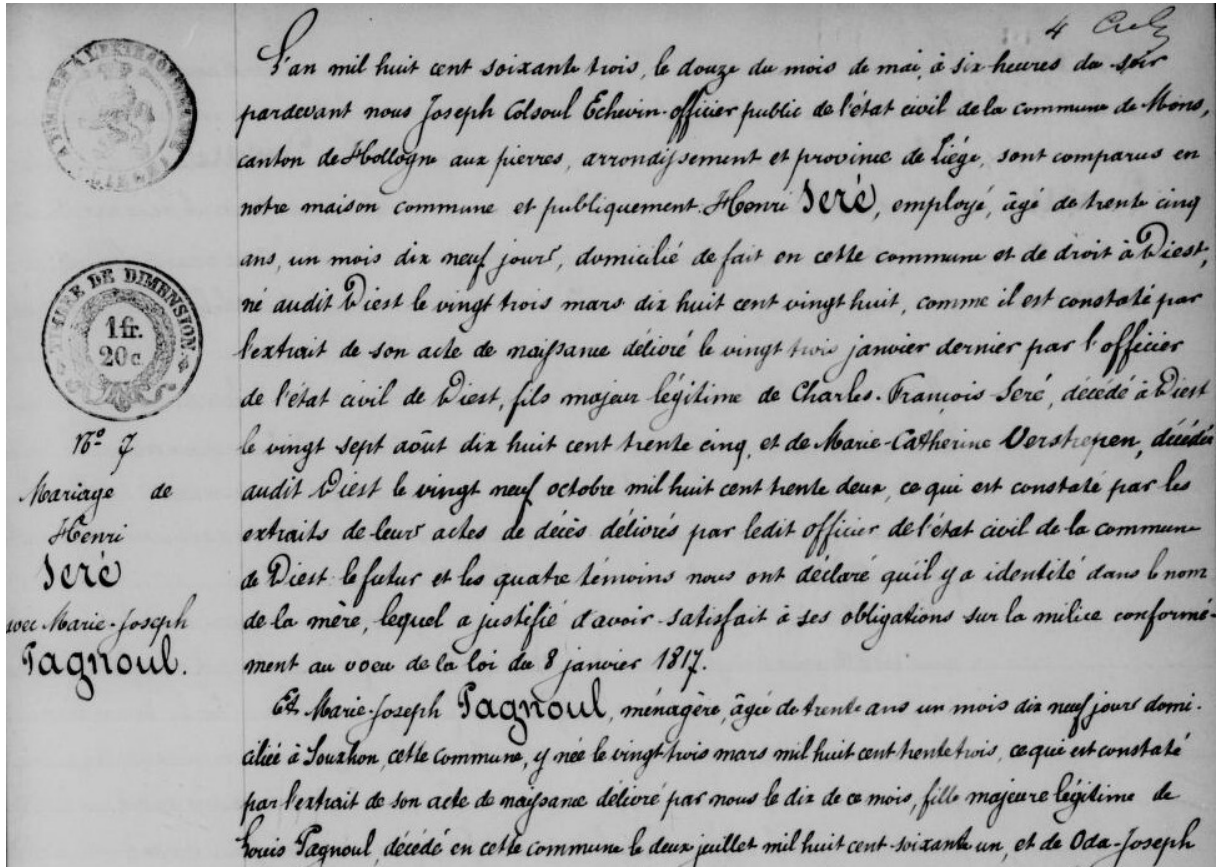 4
L'an mil huit cent soixante trois, le douze du mois de mai, à six heures du soir
pardevant nous Joseph Colsoul Echevin-officier public de l'état civil de la commune de Mons,
canton de Hollogne aux pierres, arrondissement et province de Liége, sont comparus en
notre maison commune et publiquement Henri Seré, employé, âgé de trente cinq
ans, un mois dix neuf jours, domicilié de fait en cette commune et de droit à Diest,
né audit Diest le vingt trois mars dix huit cent vingt huit, comme il est constaté par
l'extrait de son acte de naissance délivré le vingt trois janvier dernier par l'officier
de l'état civil de Diest, fils majeur légitime de Charles-François Seré, décédé à Diest
le vingt sept août dix huit cent trente cinq, et de Marie-Catherine Verstrepen, décédée
audit Diest le vingt neuf octobre mil huit cent trente deux, ce qui est constaté par les
extraits de leurs actes de décès délivrés par ledit officier de l'état civil de la commune
de Diest. le futur et les quatre témoins nous ont déclaré qu'il y a identité dans le nom
de la mère, lequel a justifié d'avoir satisfait à ses obligations sur la milice conformé-
ment au voeu de la loi du 8 janvier 1817.
Et Marie-Joseph Pagnoul, ménagère, âgée de trente ans un mois dix neuf jours domi-
ciliée à Souxhon, cette commune, y née le vingt trois mars mil huit cent trente trois, ce qui est constaté
par l'extrait de son acte de naissance délivré par nous le dix de ce mois, fille majeure légitime de
Louis Pagnoul, décédé en cette commune le deux juillet mil huit cent soixante un, et de Oda-Joseph
TIMBRE DE DIMENSION
1 fr.
20 c.
N° 7
Mariage de
Henri
Seré
avec Marie-Joseph
Pagnoul.